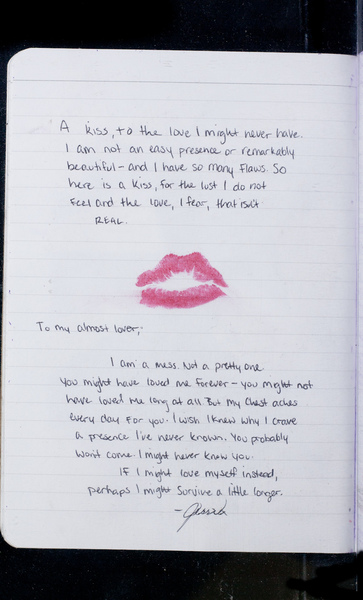 A kiss, to the love I might never have.
I am not an easy presence or remarkably
beautiful - and I have so many flaws. So
here is a kiss, for the lust I do not
feel and the love, I fear, that isn't
REAL.
To my almost lover,
I am a mess. Not a pretty one.
You might have loved me forever - you might not
have loved me long at all. But my chest aches
every day for you. I wish I knew why I crave
a presence I've never known. You probably
won't come. I might never know you.
If I might love myself instead,
perhaps I might survive a little longer.